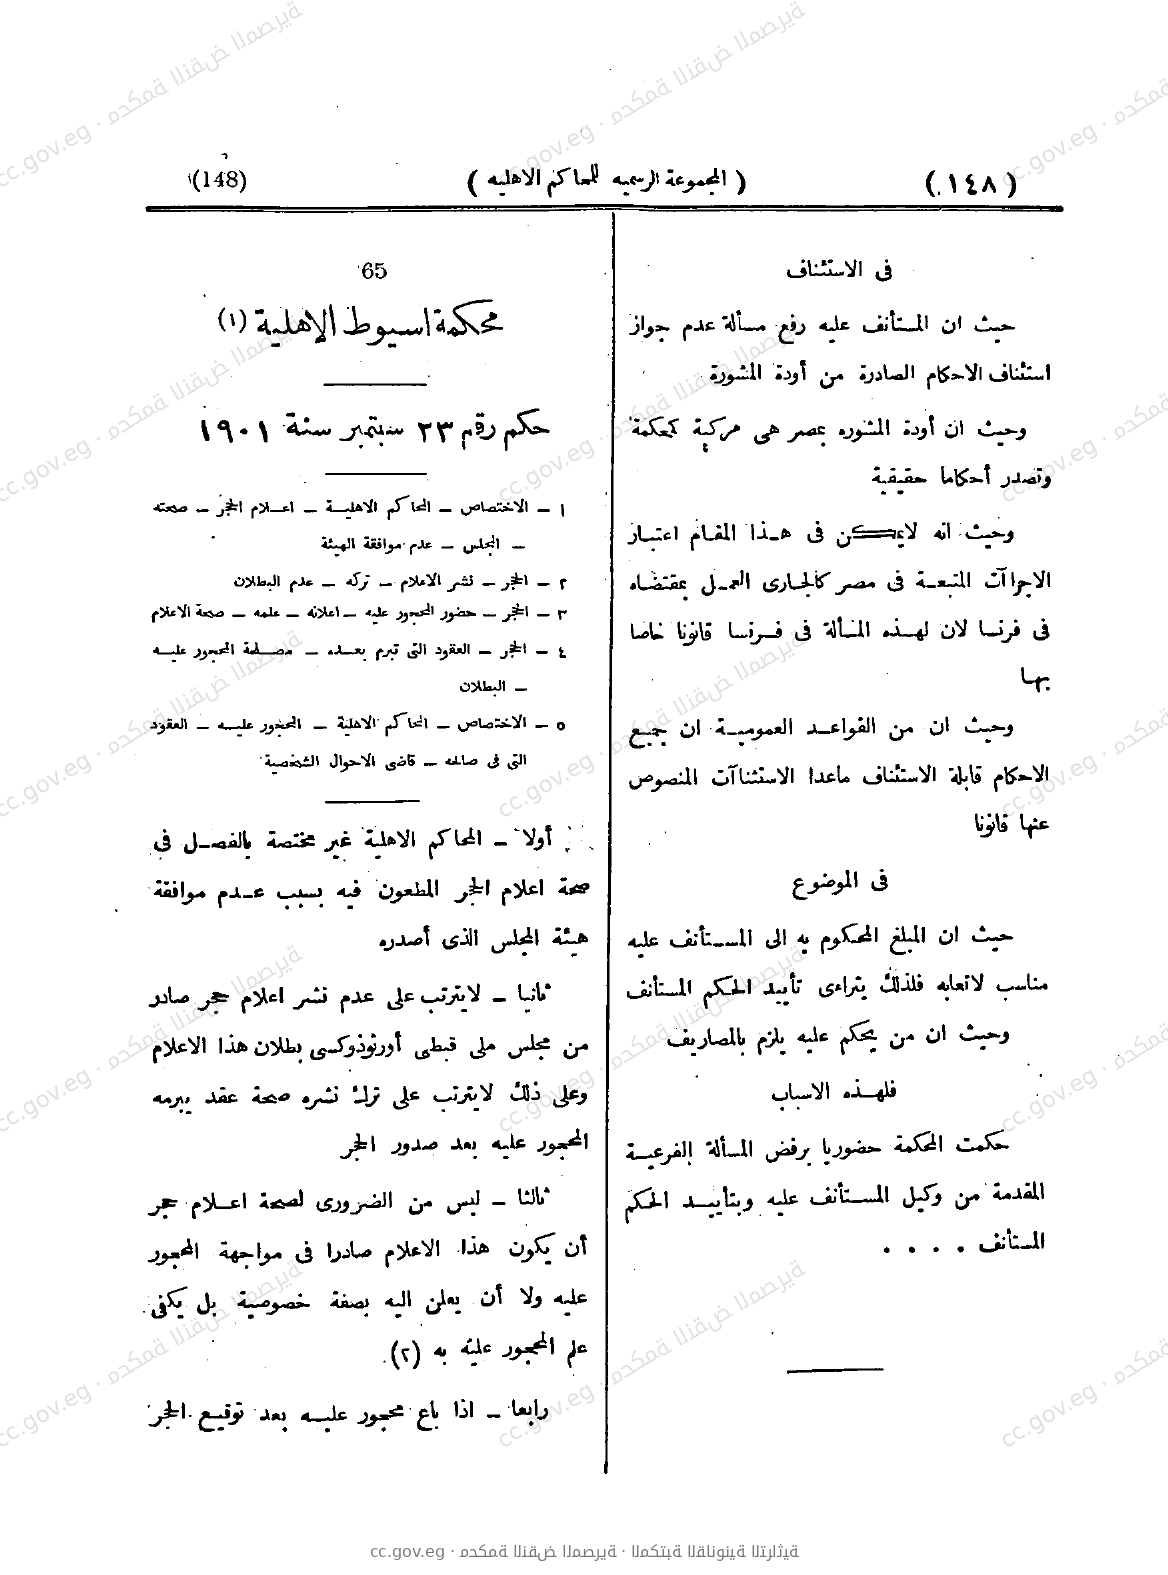 ( ١٤٨ )
( المجموعة الرسميه للمحاكم الاهليه )
(148)
فى الاستئناف
حيث ان المستأنف عليه رفع مسألة عدم جواز
استئناف الاحكام الصادرة من أودة المشورة
وحيث ان أودة المشوره بمصر هى مركبة كمحكمة
وتصدر أحكاما حقيقية
وحيث انه لايمكن فى هذا المقام اعتبار
الاجراآت المتبعة فى مصر كالجارى العمل بمقتضاه
فى فرنسا لان لهذه المسألة فى فرنسا قانونا خاصا
بها
وحيث ان من القواعد العمومية ان جميع
الاحكام قابلة الاستئناف ماعدا الاستثناآت المنصوص
عنها قانونا
فى الموضوع
حيث ان المبلغ المحكوم به الى المستأنف عليه
مناسب لاتعابه فلذلك يتراءى تأييد الحكم المستأنف
وحيث ان من يحكم عليه يلزم بالمصاريف
فلهذه الاسباب
حكمت المحكمة حضوريا برفض المسألة الفرعية
المقدمة من وكيل المستأنف عليه وبتأييد الحكم
المستأنف . . . .
65
محكمة اسيوط الاهلية (١)
حكم رقم ٢٣ سبتمبر سنة ١٩٠١
١ – الاختصاص – المحاكم الاهلية – اعلام الحجر – صحته
– المجلس – عدم موافقة الهيئة
٢ – الحجر – نشر الاعلام – تركه – عدم البطلان
٣ – الحجر – حضور المحجور عليه – اعلانه – علمه – صحة الاعلام
٤ – الحجر – العقود التى تبرم بعده – مصلحة المحجور عليه
– البطلان
٥ – الاختصاص – المحاكم الاهلية – المحجور عليه – العقود
التى فى صالحه – قاضى الاحوال الشخصية
أولا – المحاكم الاهلية غير مختصة بالفصل فى
صحة اعلام الحجر المطعون فيه بسبب عدم موافقة
هيئة المجلس الذى أصدره
ثانيا – لايترتب على عدم نشر اعلام حجر صادر
من مجلس ملى قبطى أورثوذوكسى بطلان هذا الاعلام
وعلى ذلك لايترتب على ترك نشره صحة عقد يبرمه
المحجور عليه بعد صدور الحجر
ثالثا – ليس من الضرورى لصحة اعلام حجر
أن يكون هذا الاعلام صادرا فى مواجهة المحجور
عليه ولا أن يعلن اليه بصفة خصوصية بل يكفى
علم المحجور عليه به (٢)
رابعا – اذا باع محجور عليه بعد توقيع الحجر
cc.gov.eg · محكمة النقض المصرية · المكتبة القانونية التراثية